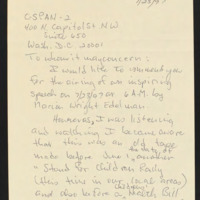 C-SPAN-2
400 N. Capitol St NW
Suite 650
Wash. D.C. 20001
To whom it may concern:
I would like to commend you
for the airing of an inspiring
speech on 7/23/97 at 6 A.M. by
Marian Wright Edelman.
However, I was listening
and watching I became aware
that this was an old tape
made before June 1, another
"Stand for Children Rally
(this time in our local areas)
and also before a Health Bill